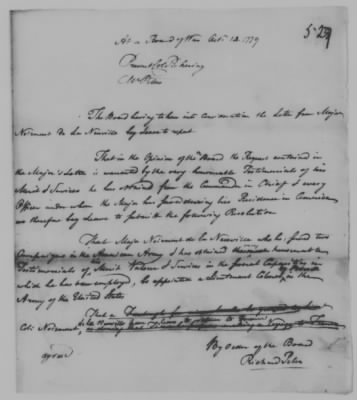 At a Board of War Octr. 12. 1779
Present Col. Pickering
Mr Peters
The Board having taken into Consideration the Letter from Major
Nodiment de la Neuville beg leave to report
That in the Opinion of the Board the Request contained in
the Major's Letter is warranted by the very honourable Testimonials of his
Merit & Services he has obtained from the Commander in Chief & every
Officer under whom the Major has served during his Residence in America
we therefore beg leave to submit the following Resolution
That Major Nodiment de la Neuville who has served two
Campaigns in the American Army & has obtained honourable
Testimonials of Merit Talents & Services in the several Capacities in
which he has been employed, be appointed a Lieutenant Colonel by Brevet in the
Army of the United States
That a
Col: Nodiment de la Neuville
agreed
By Order of the Board
Richard Peters